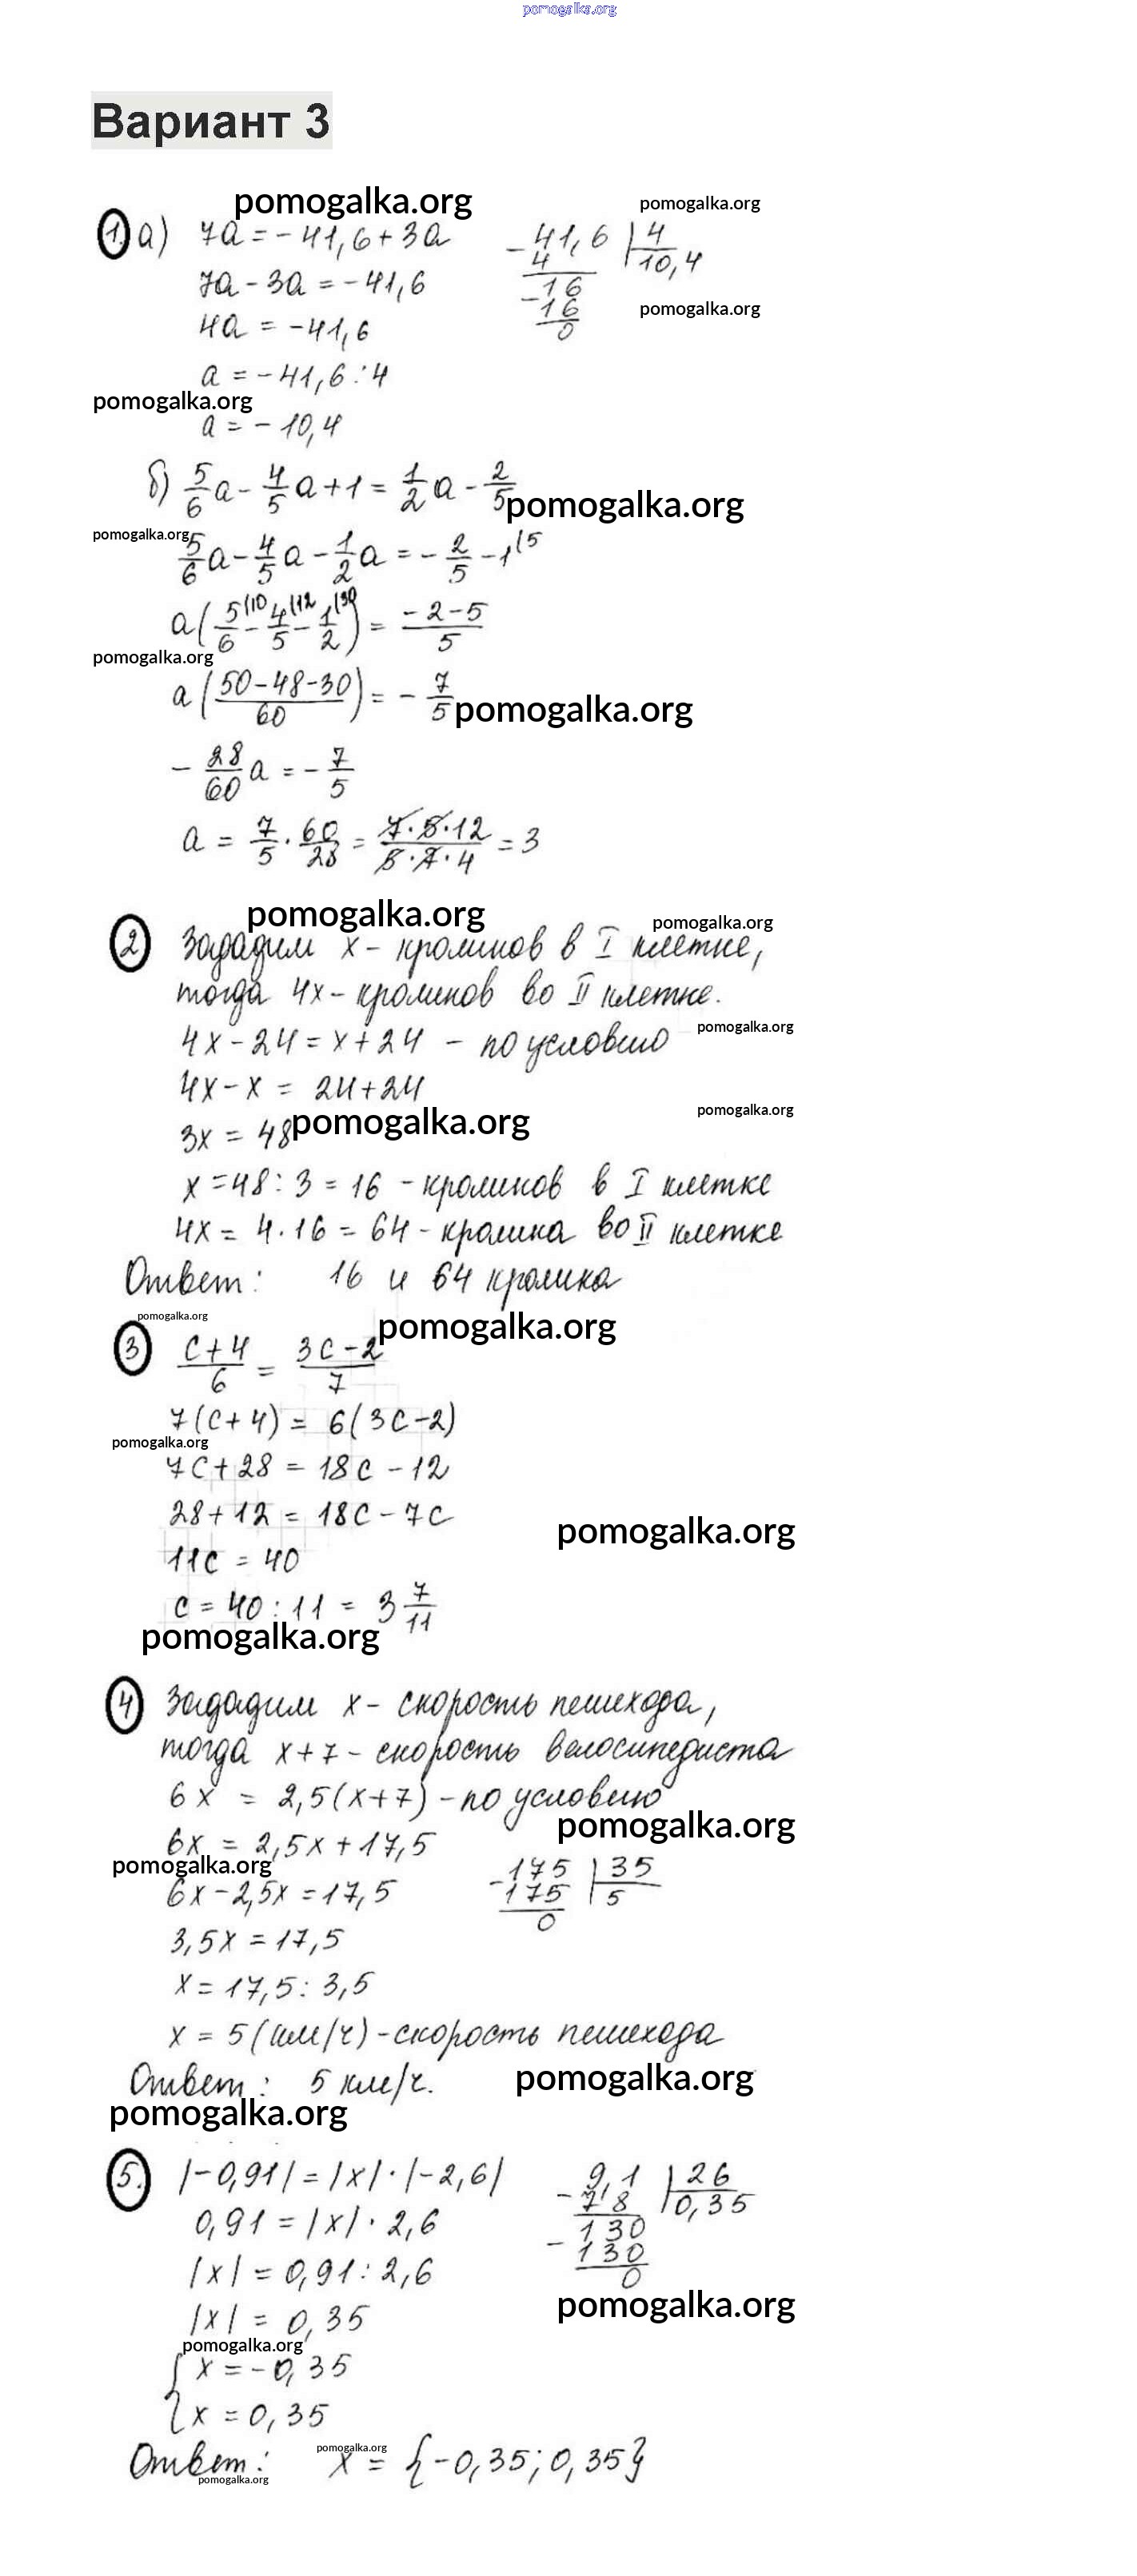 pomogalka.org
Вариант 3
pomogalka.org
pomogalka.org
1. а) 7a = - 41,6 + 3a
41,6 | 4
7a - 3a = - 41,6
- 4 10,4
16
4a = - 41,6
- 16
pomogalka.org
0
a = - 41,6 : 4
pomogalka.org
a = - 10,4
б) 5/6 a - 4/5 a + 1 = 1/2 a - 2/5
pomogalka.org
pomogalka.org
5/6 a - 4/5 a - 1/2 a = - 2/5 - 1(5
a (5(10/6 - 4(12/5 - 1(30/2) = (- 2 - 5)/5
pomogalka.org
a ((50 - 48 - 30)/60) = - 7/5
pomogalka.org
- 28/60 a = - 7/5
a = 7/5 · 60/28 = (7 · 5 · 12)/(5 · 7 · 4) = 3
pomogalka.org
pomogalka.org
2 Зададим x - кроликов в I клетке,
тогда 4x - кроликов во II клетке.
pomogalka.org
4x - 24 = x + 24 - по условию
4x - x = 24 + 24
pomogalka.org
pomogalka.org
3x = 48
x = 48 : 3 = 16 - кроликов в I клетке
4x = 4 · 16 = 64 - кролика во II клетке
Ответ: 16 и 64 кролика
pomogalka.org
pomogalka.org
3 (c + 4)/6 = (3c - 2)/7
7(c + 4) = 6(3c - 2)
pomogalka.org
7c + 28 = 18c - 12
28 + 12 = 18c - 7c
pomogalka.org
11c = 40
c = 40 : 11 = 3 7/11
pomogalka.org
4 Зададим x - скорость пешехода,
тогда x + 7 - скорость велосипедиста
6x = 2,5(x + 7) - по условию
pomogalka.org
6x = 2,5x + 17,5
pomogalka.org
- 175 | 35
175 5
0
6x - 2,5x = 17,5
3,5x = 17,5
x = 17,5 : 3,5
x = 5 (км/ч) - скорость пешехода
Ответ: 5 км/ч.
pomogalka.org
pomogalka.org
5. |-0,91| = |x| · |-2,6|
- 9,1 | 26
78 0,35
0,91 = |x| · 2,6
130
- 130
0
|x| = 0,91 : 2,6
pomogalka.org
|x| = 0,35
pomogalka.org
{ x = - 0,35
x = 0,35
pomogalka.org
Ответ: x = {-0,35; 0,35}
pomogalka.org